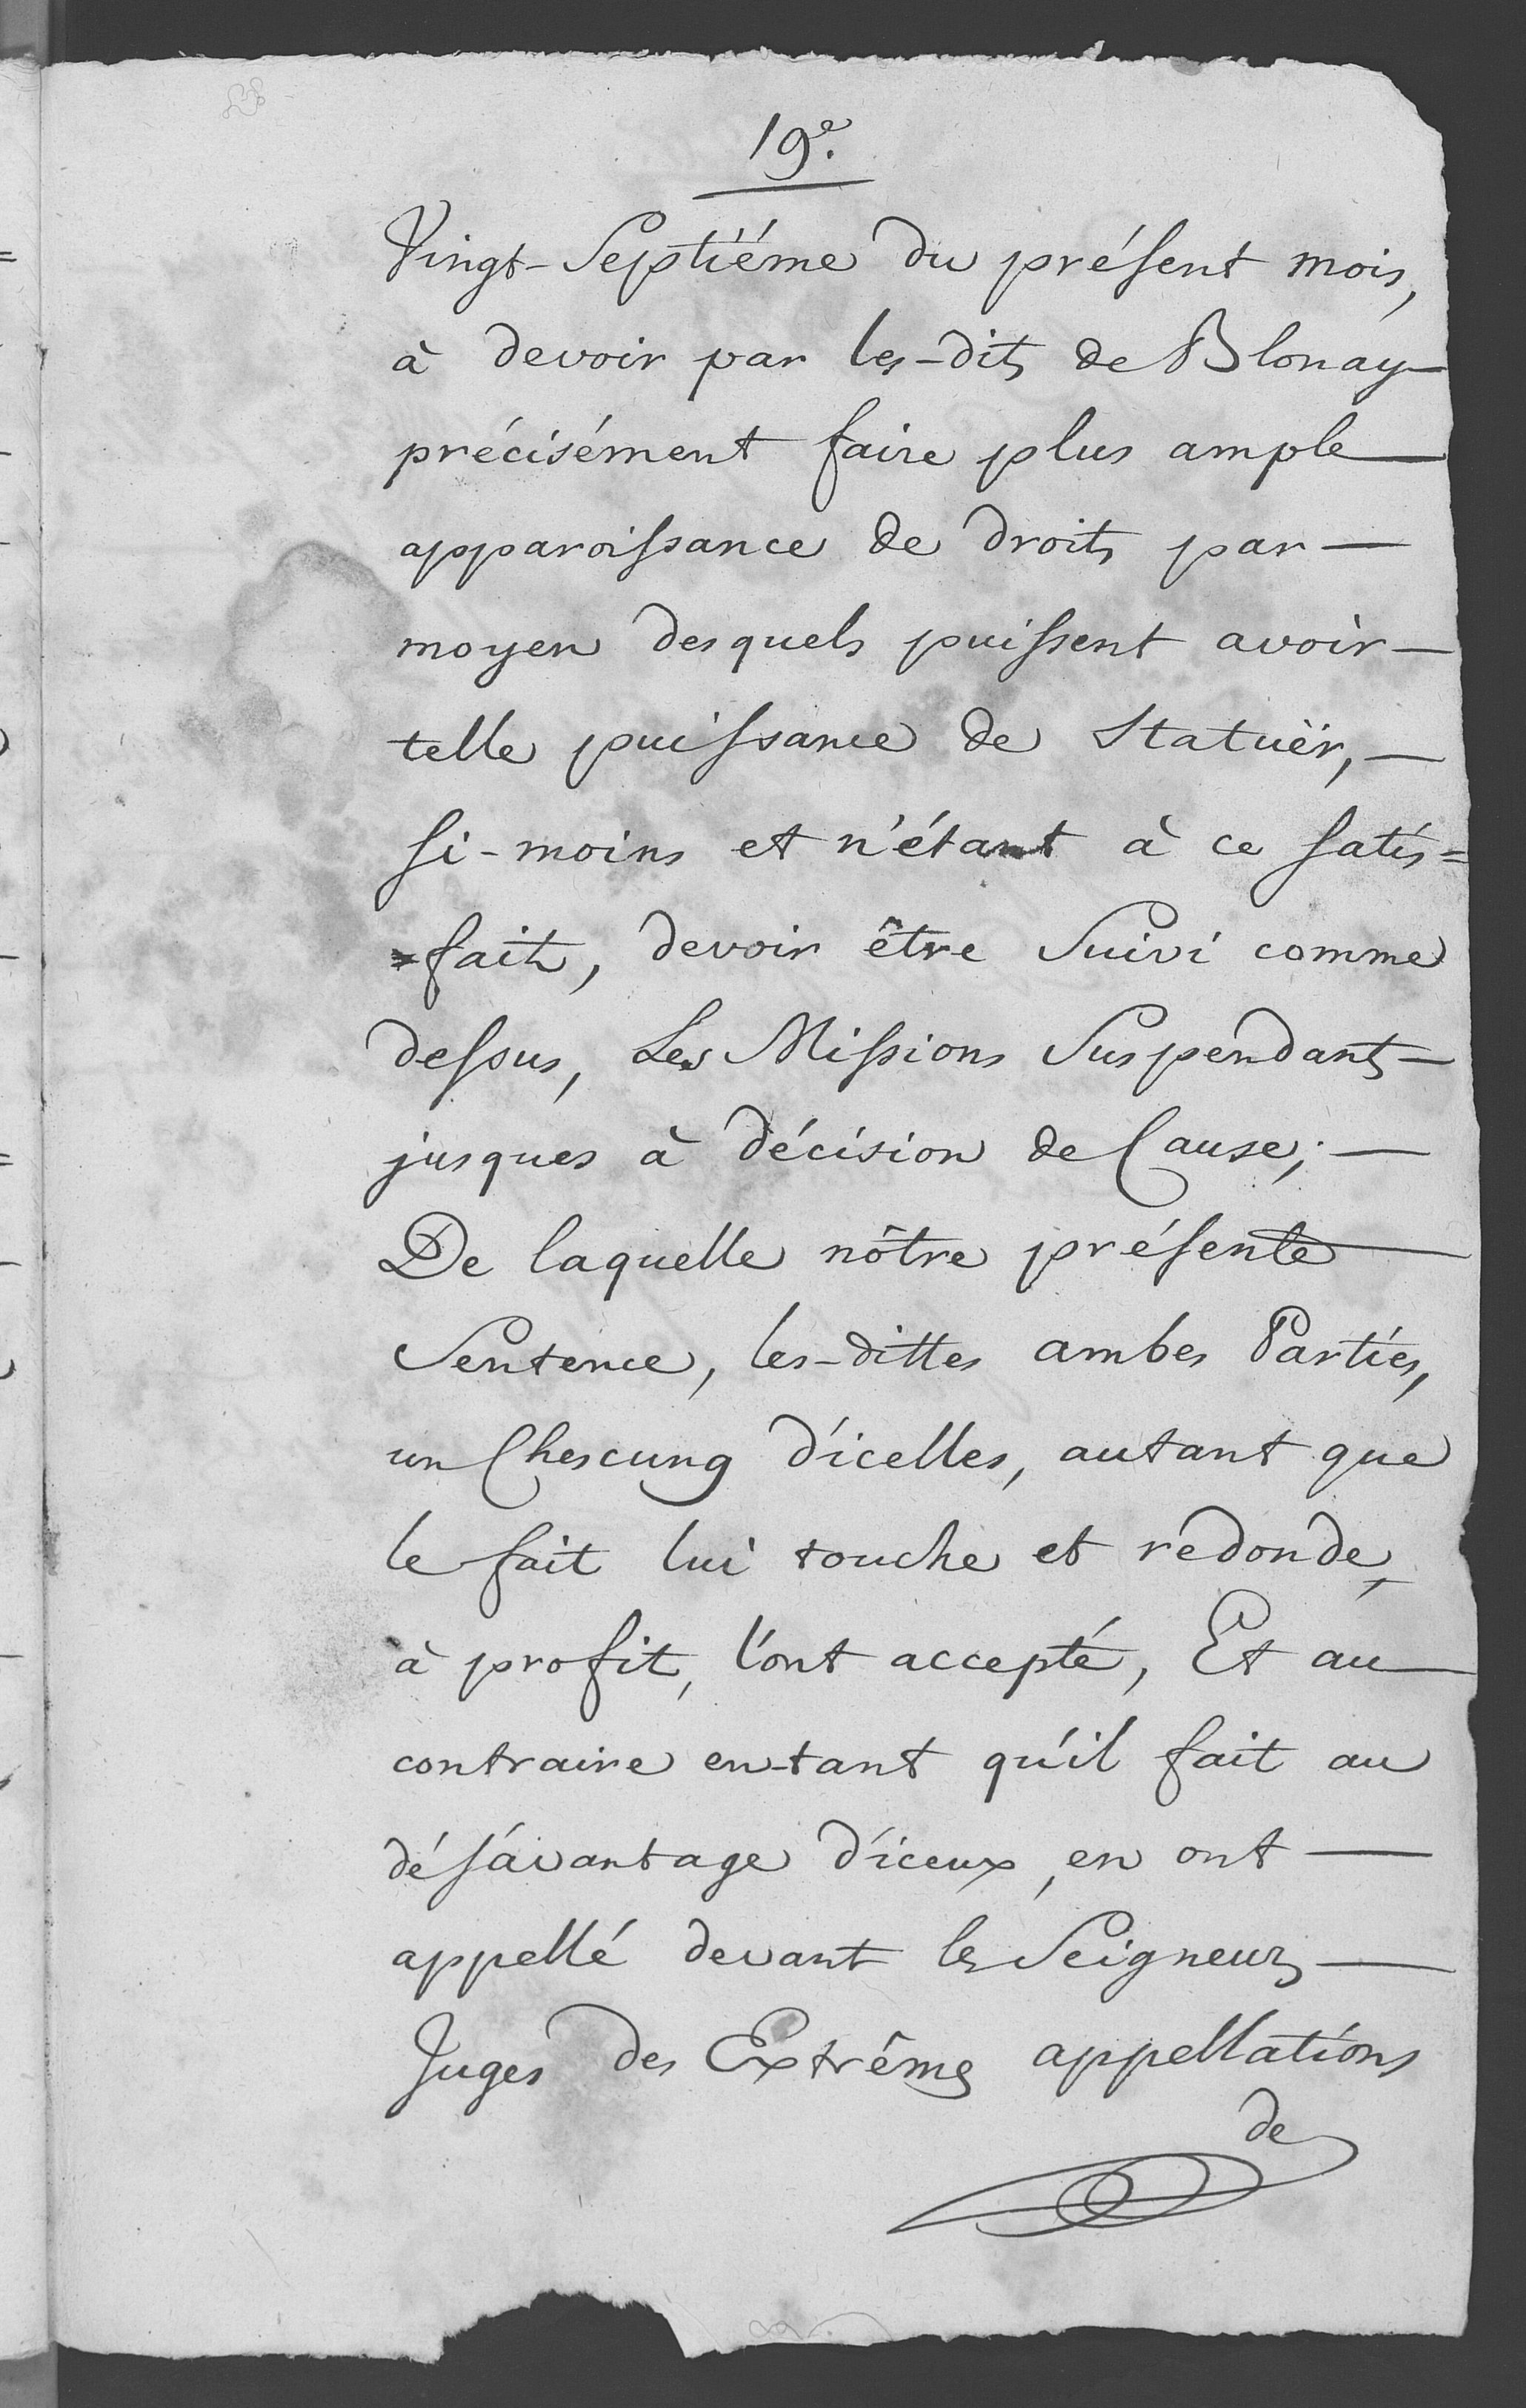 19e.
Vingt-Septiéme du présent mois,
à devoir par les-dits de Blonay
précisément faire plus ample
apparoissance de droits par
moyen desquels puissent avoir
telle puissance de Statuër,
si-moins et n'étant à ce satis=
=fait, devoir être Suivi comme
dessus, Les Missions Suspendants
jusques à décision de Cause;
De laquelle nôtre présente
Sentence, les-dittes ambes Parties,
un Chescung d'icelles, autant que
le fait lui touche et redonde,
à profit, l'ont accepté, Et au
contraire en-tant qu'il fait au
désavantage d'iceux, en ont
appellé devant les Seigneurs
Juges des Extrêmes appellations
de